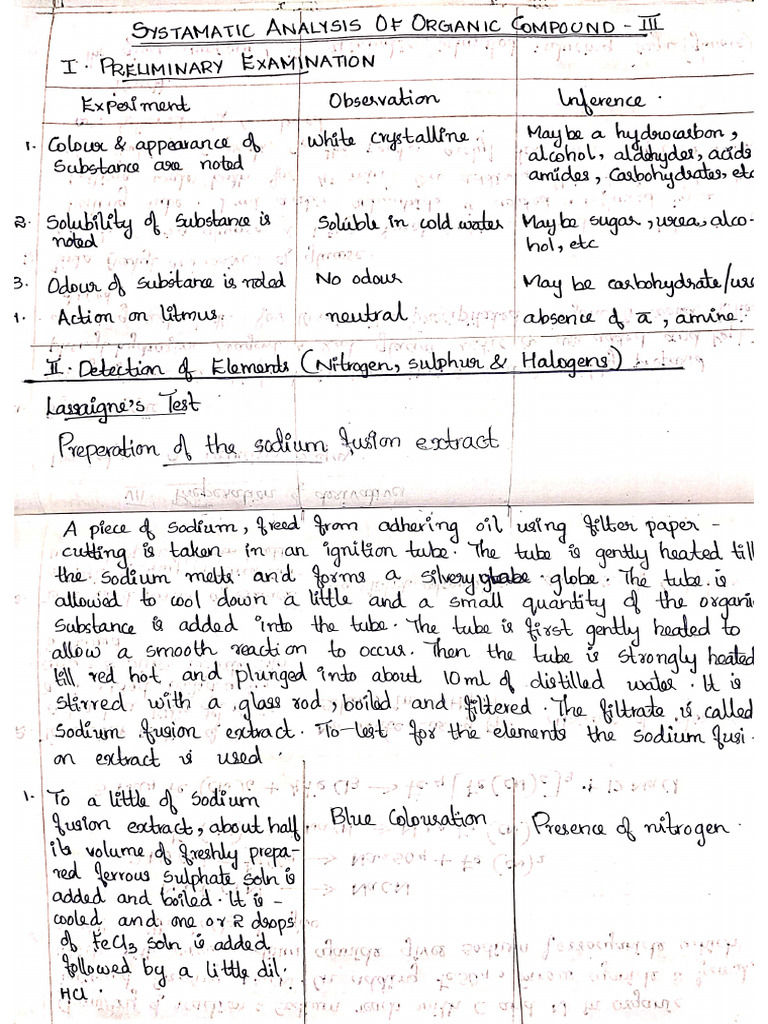 SYSTAMATIC ANALYSIS OF ORGANIC COMPOUND - III
I. PRELIMINARY EXAMINATION
Experiment Observation Inference.
1. Colour & appearance of White crystalline. Maybe a hydrocarbon,
Substance are noted alcohol, aldehydes, acids
amides, Carbohydrates, etc
2. Solubility of substance is Soluble in cold water May be sugar, urea, alco-
noted hol, etc
3. Odour of substance is noted No odour May be carbohydrate/ure
Action on litmus. neutral absence of a, amine.
II. Detection of Elements (Nitrogen, sulphur & Halogens)
Lassaigne's Test
Preperation of the sodium fusion extract
A piece of sodium, freed from adhering oil using filter paper -
cutting is taken in an ignition tube. The tube is gently heated till
the sodium melts and forms a silvery globe. The tube is
allowed to cool down a little and a small quantity of the organi
Substance is added into the tube. The tube is first gently heated to
allow a smooth reaction to occur. Then the tube is strongly heated
till red hot and plunged into about 10ml of distilled water. It is
stirred with a glass rod, boiled and filtered. The filtrate is called
Sodium fusion extract. To test for the elements the sodium fusi-
on extract is used.
1. To a little of sodium Blue Colouration Presence of nitrogen.
fusion extract, about half
its volume of freshly prepa-
red ferrous sulphate soln is
added and boiled. It is -
cooled and one or 2 drops
of FeCl3 soln is added
followed by a little dil.
HCl.